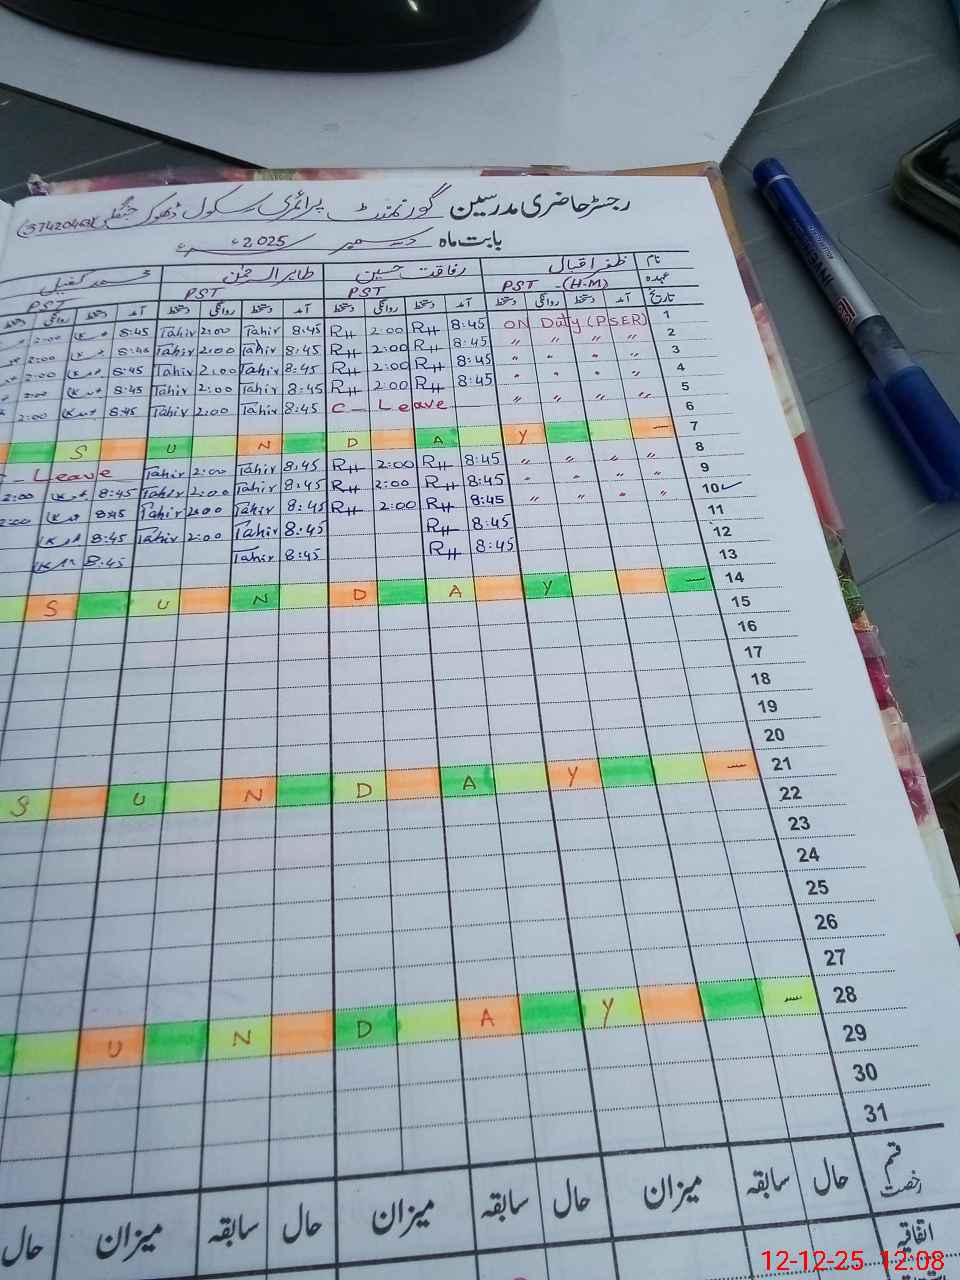 رجسٹر حاضری مدرسین گورنمنٹ پرائمری سکول ڈھوک (37420461)
بابت ماہ دسمبر 2025ء
نام ظفر اقبال رفاقت حسین طاہر الرحمٰن محمد کفیل
عہدہ PST -(H-M) PST PST PST
تاریخ آمد دستخط روانگی دستخط آمد دستخط روانگی دستخط آمد دستخط روانگی دستخط آمد دستخط روانگی دستخط
2:00 8:45 Tahir 2:00 Tahir 8:45 RH 2:00 RH 8:45 ON Duty (PSER) 1
2:00 8:45 Tahir 2:00 Tahir 8:45 RH 2:00 RH 8:45 〃 〃 〃 〃 2
2:00 8:45 Tahir 2:00 Tahir 8:45 RH 2:00 RH 8:45 〃 〃 〃 〃 3
2:00 8:45 Tahir 2:00 Tahir 8:45 RH 2:00 RH 8:45 〃 〃 〃 〃 4
2:00 8:45 Tahir 2:00 Tahir 8:45 C - Leave 〃 〃 〃 〃 5
6
S U N D A Y — 7
C - Leave Tahir 2:00 Tahir 8:45 RH 2:00 RH 8:45 〃 〃 〃 〃 8
2:00 8:45 Tahir 2:00 Tahir 8:45 RH 2:00 RH 8:45 〃 〃 〃 〃 9
2:00 8:45 Tahir 2:00 Tahir 8:45 RH 2:00 RH 8:45 〃 〃 〃 〃 10✓
8:45 Tahir 2:00 Tahir 8:45 RH 8:45 11
8:45 Tahir 8:45 RH 8:45 12
13
S U N D A Y — 14
15
16
17
18
19
20
S U N D A Y — 21
22
23
24
25
26
27
U N D A Y — 28
29
30
31
قسم رخصت حال سابقہ میزان حال سابقہ میزان حال سابقہ میزان حال
اتفاقیہ
12-12-25 12:08